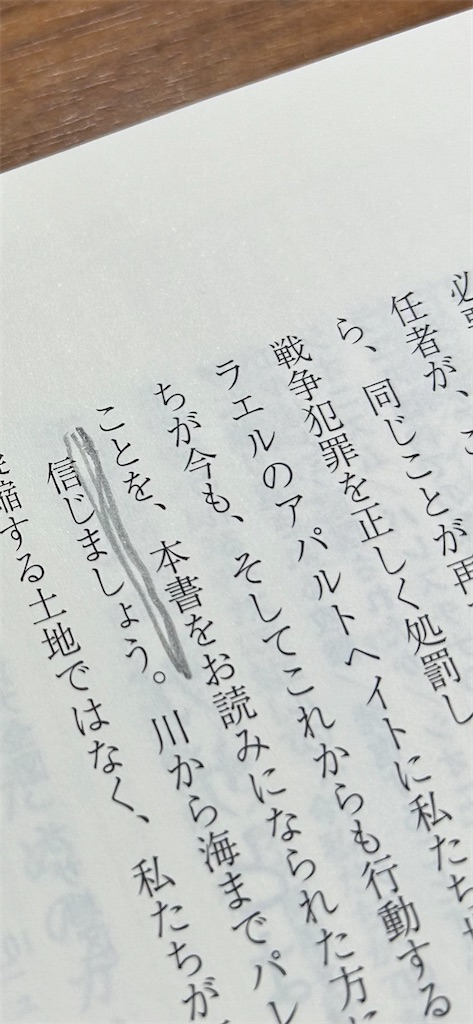 必
任者が、こ
ら、同じことが再
戦争犯罪を正しく処罰し
ラエルのアパルトヘイトに私たち
ちが今も、そしてこれからも行動する
ことを、本書をお読みになられた方に
信じましょう。川から海までパレ
縮する土地ではなく、私たちが